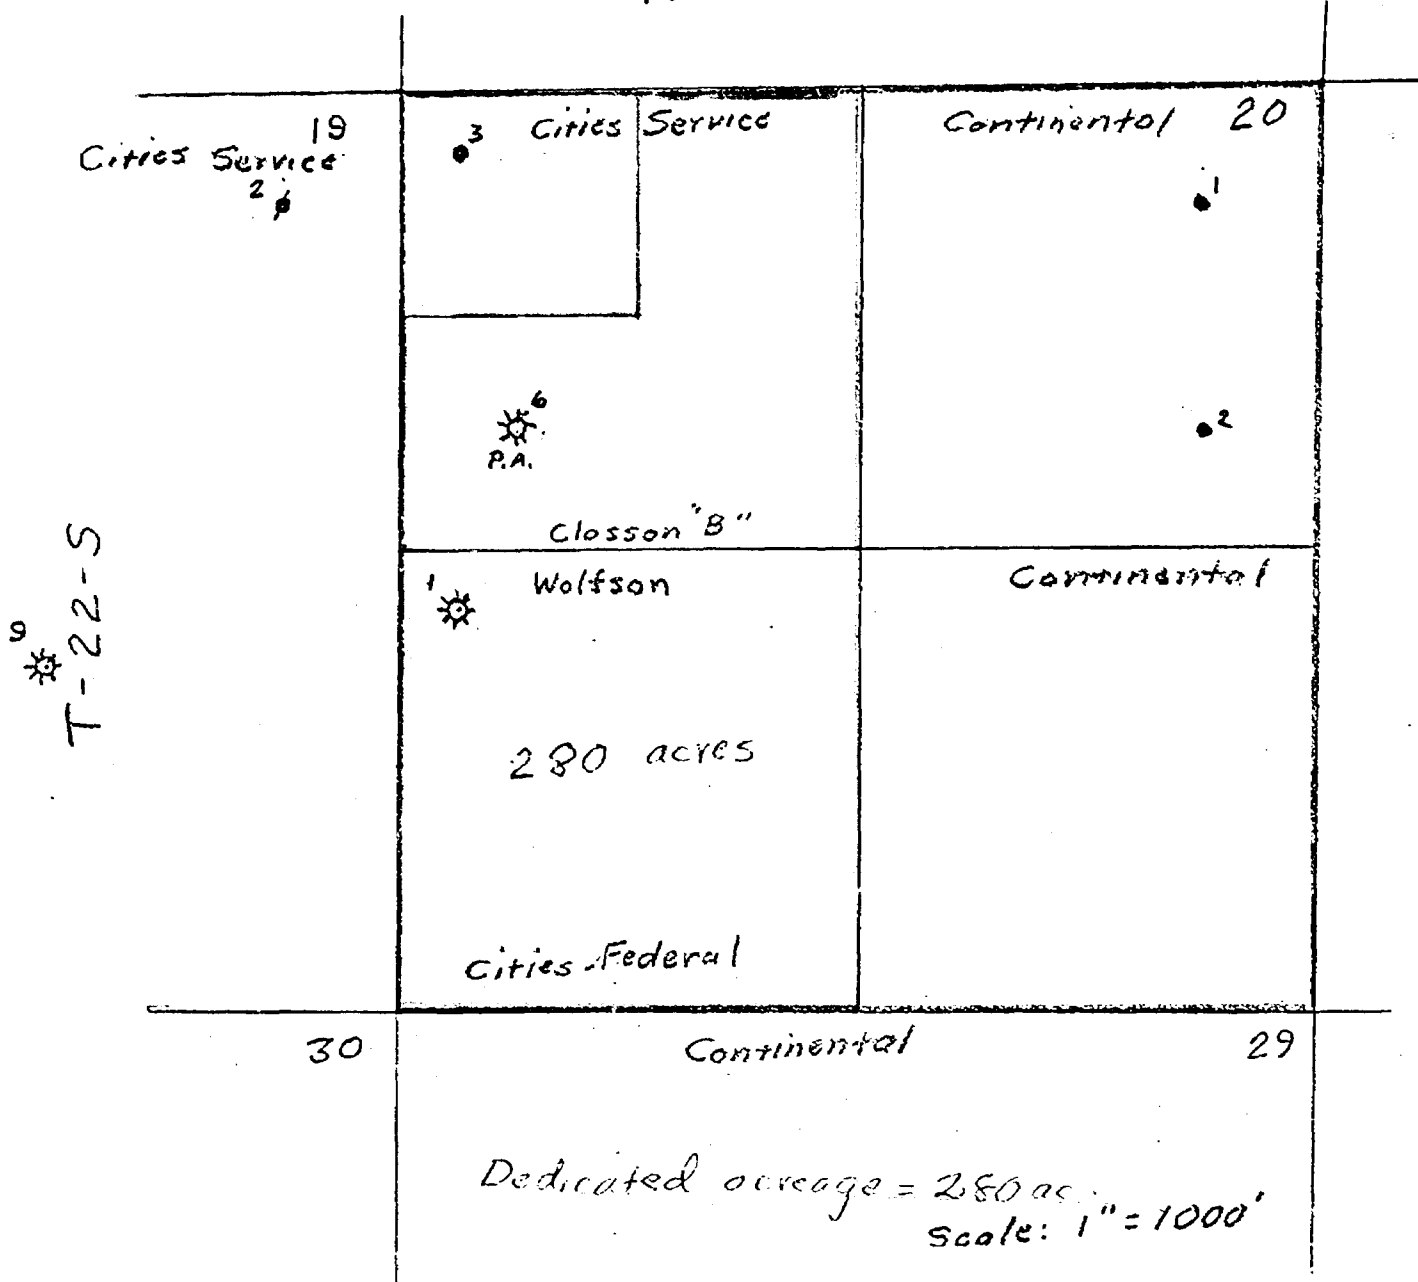 19
Cities Service
2
3
Cities Service
Continental 20
1
6
P.A.
2
Closson "B"
1
Wolfson
Continental
9
T-22-S
280 acres
Cities-Federal
30
Continental
29
Dedicated acreage = 280 ac.
Scale: 1" = 1000'